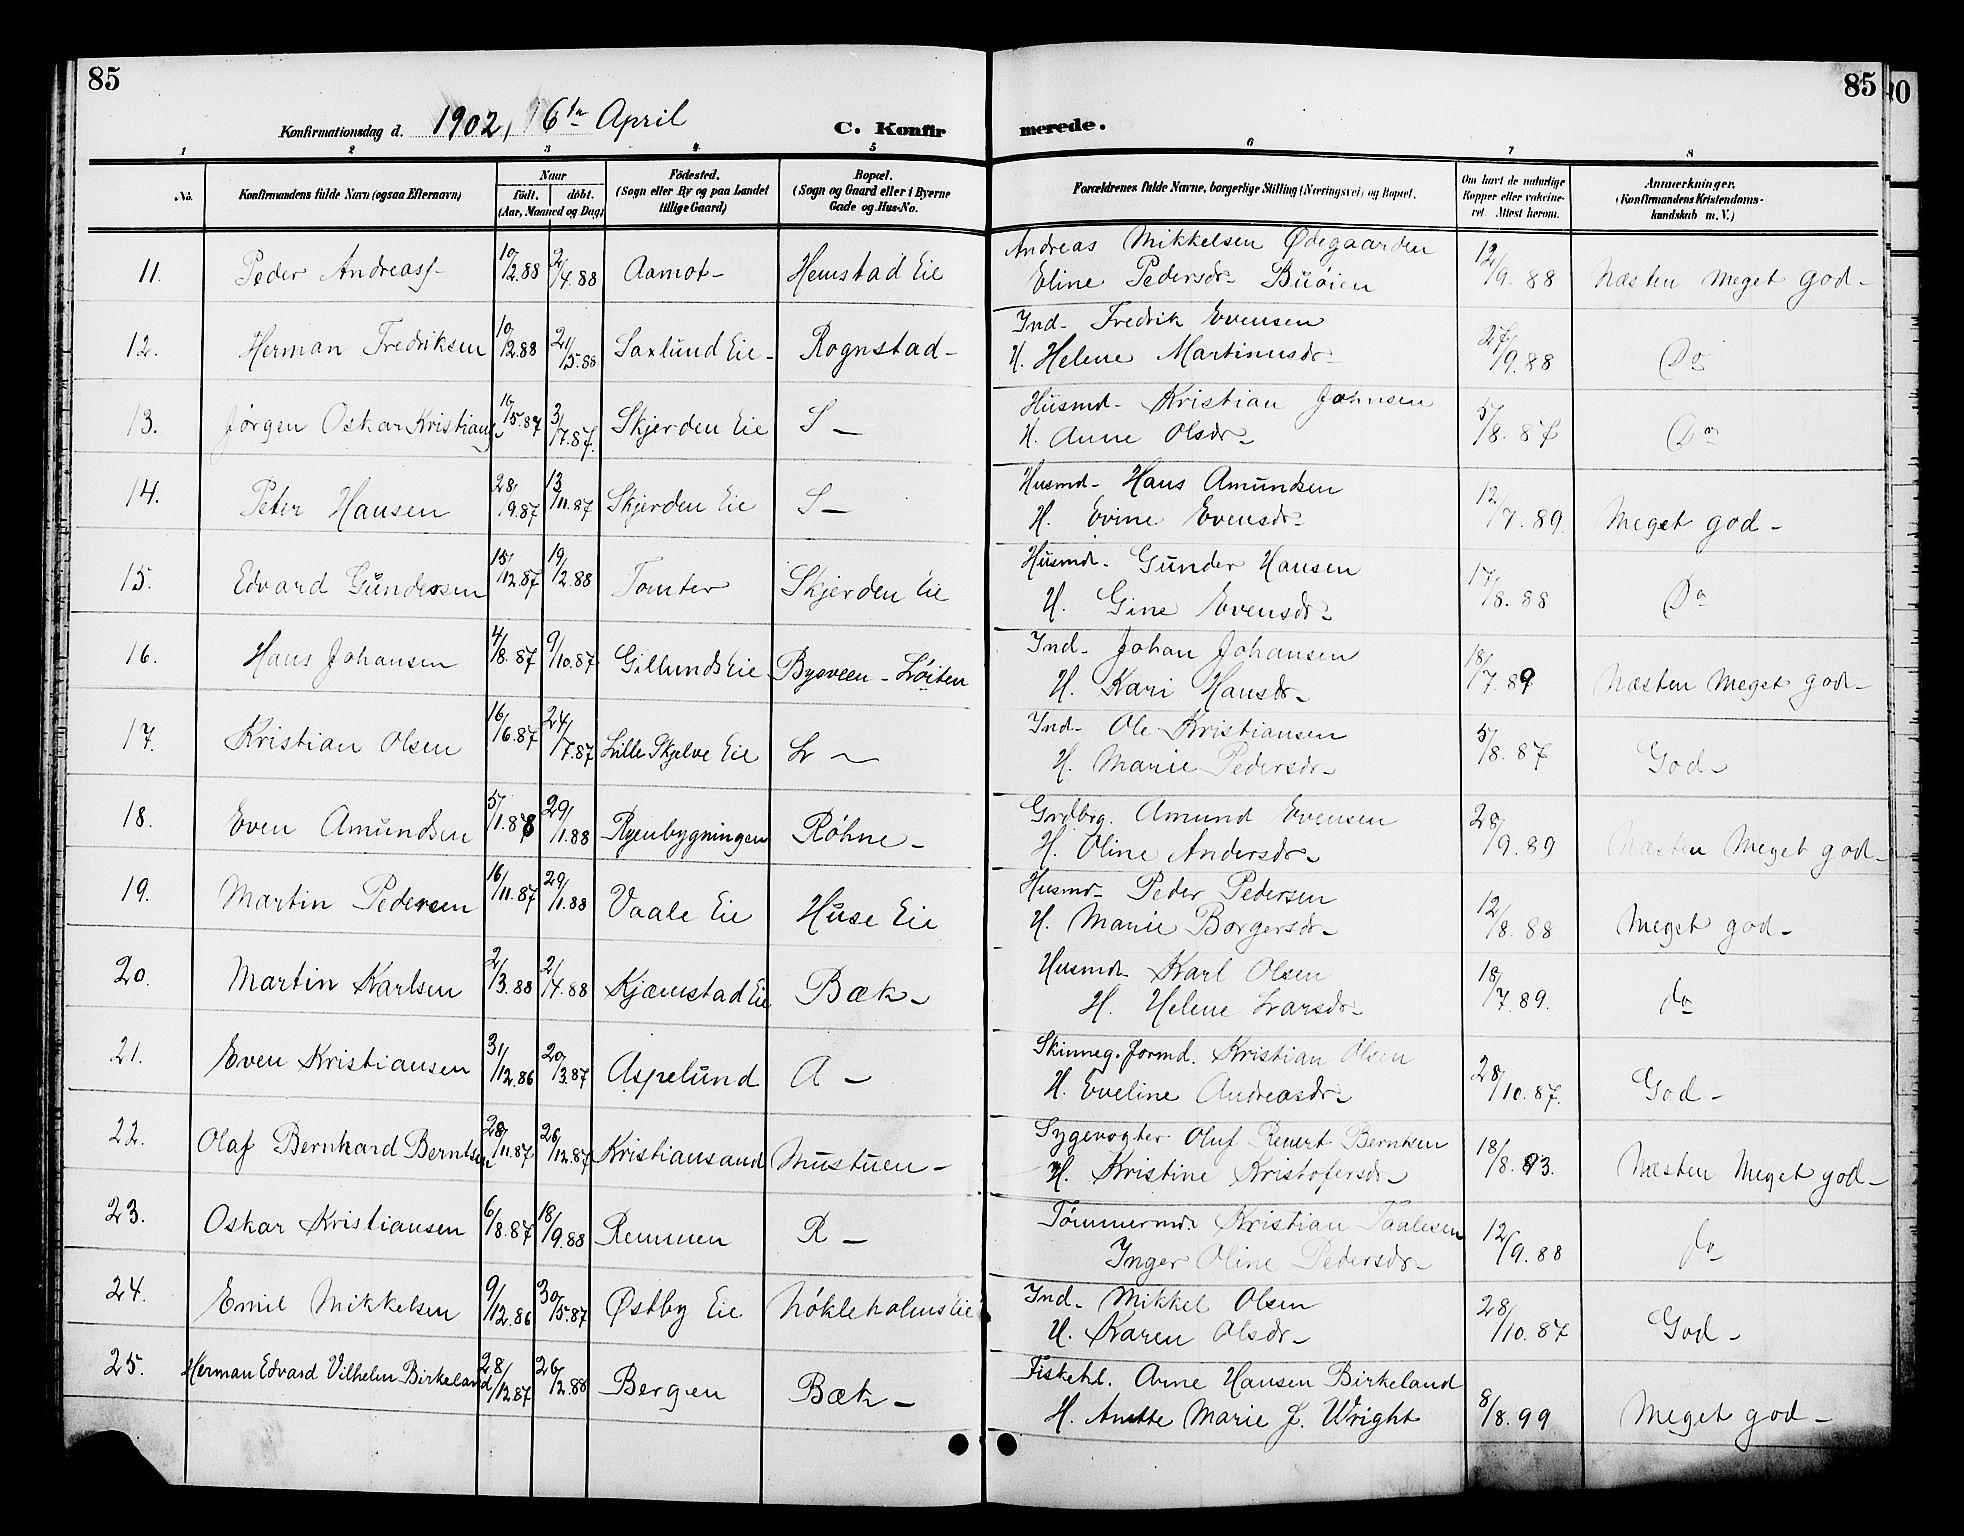 85
85
Konfirmationsdag d. 1902, 6te April
C. Konfirmerede.
1 2 3 4 5 6 7 8
No. Konfirmandens fulde Navn (ogsaa Efternavn) Naar født. døbt. (Aar, Maaned og Dag) Fødested. (Sogn eller By og paa Landet tillige Gaard) Bopæl. (Sogn og Gaard eller i Byerne Gade og Hus-No. Forældrenes fulde Navne, borgerlige Stilling (Næringsvei) og Bopæl. Om havt de naturlige Kopper eller vakcineret. Attest herom. Anmærkninger. (Konfirmandens Kristendomskundskab m. V.)
11. Peder Andreass- 10/12.88 2/4.88 Aamot- Hemstad Eie Andreas Mikkelsen Ødegaarden 12/9.88 Næsten Meget god-
Eline Pedersdr- Buøien
12. Herman Fredriksen 10/12.88 21/5.88 Saxlund Eie- Rognstad- Ind- Fredrik Evensen 27/9.88 Do
H. Helene Martinusdr-
13. Jørgen Oskar Kristians- 16/5.87 3/7.87. Skjerden Eie S- Husmd- Kristian Johnsen 5/8.87 Do
H. Anne Olsdr-
14. Peter Hansen 28/9.87 13/11.87 Skjerden Eie S- Husmd- Hans Amundsen 12/7.89 Meget god-
H. Evine Evensdr-
15. Edvard Gundersen 15/12.87 19/2.88 Tomter Skjerden Eie Husmd- Gunder Hansen 17/8.88 Do
H. Gine Evensdr-
16. Hans Johansen 4/8.87 9/10.87 Gillunds Eie Bysveen-Løiten Ind- Johan Johansen 18/7.89 Næsten Meget god-
H. Kari Hansdr-
17. Kristian Olsen 16/6.87 24/7.87 Lille Skjelve Eie L- Ind- Ole Kristiansen 5/8.87 God-
H. Marie Pedersdr-
18. Even Amundsen 5/1.88 29/1.88 Ryenbygningen Røhne- Grdbrg. Amund Evensen 28/9.89 Næsten Meget god-
H. Oline Andersdr-
19. Martin Pedersen 16/11.87 29/1.88 Vaale Eie Huse Eie Husmd- Peder Pedersen 12/8.88 Meget god-
H. Marie Borgersdr-
20. Martin Karlsen 2/3.88 2/4.88 Kjæmstad Eie Bæk- Husmd- Karl Olsen 18/7.89. do
H. Helene Larsdr-
21. Even Kristiansen 31/12.86 20/3.87 Aspelund A- Skinneg. formd. Kristian Olsen 28/10.87. God-
H. Eveline Andreasdr-
22. Olaf Bernhard Berntsen 28/11.87 26/12.87 Kristiansand Mustuen- Sygevogter Oluf Revert Berntsen 18/8.93. Næsten Meget god-
H. Kristine Kristofersdr-
23. Oskar Kristiansen 6/8.87 18/9.88 Remmen R- Tømmermd. Kristian Taalesen 12/9.88 do
Inger Oline Pedersdr-
24. Emil Mikkelsen 9/12.86 30/5.87 Østby Eie Nøkleholms Eie Ind- Mikkel Olsen 28/10.87 God-
H. Karen Olsdr-
25. Herman Edvard Vilhelm Birkeland 28/12.87 26/12.88 Bergen Bæk- Fiskehl. Arne Hansen Birkeland 8/8.99 Meget god-
H. Anette Marie J. Wright